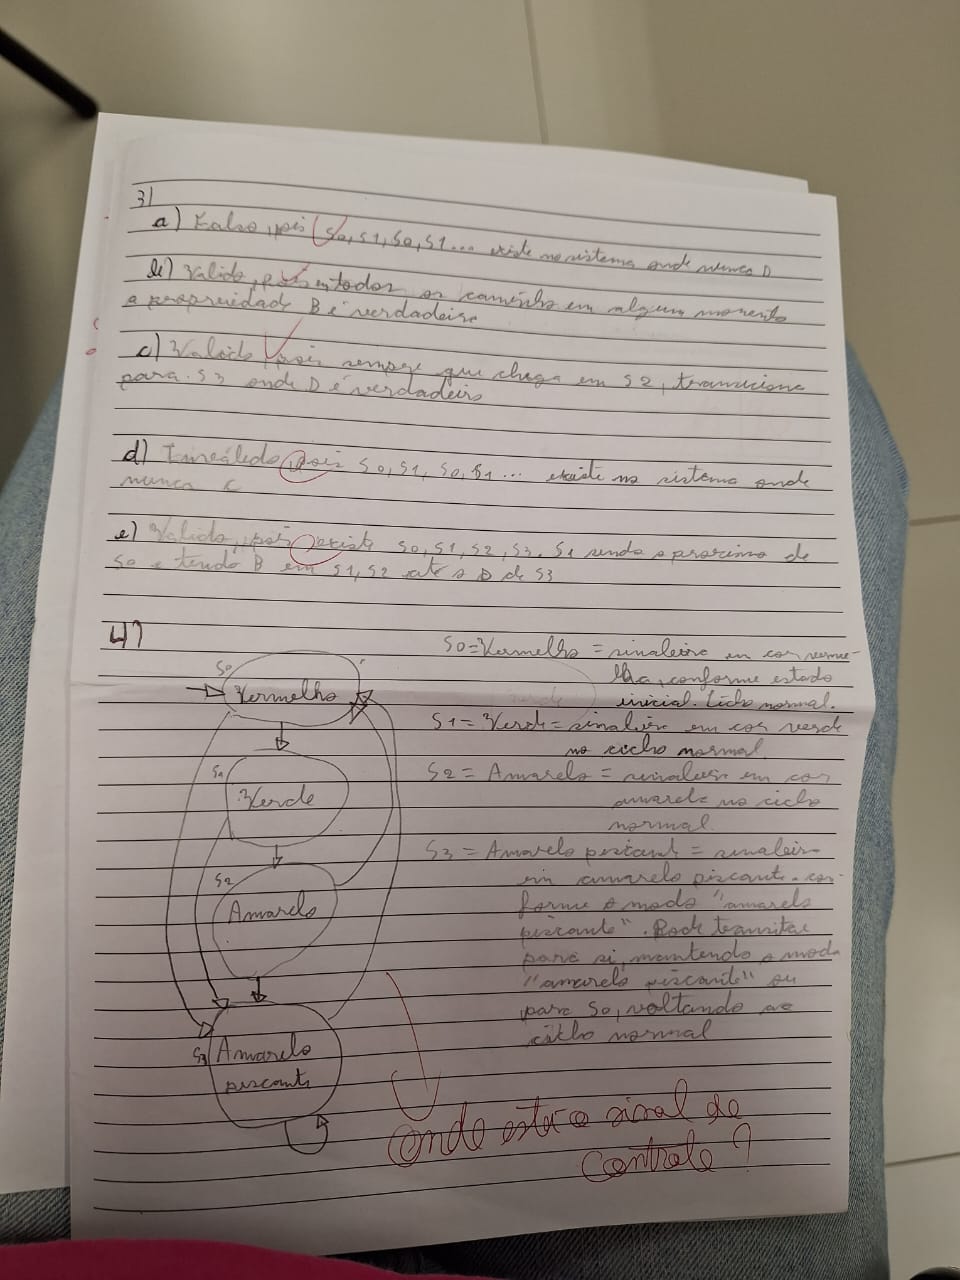 3)
a) Falso, pois S0, S1, S0, S1... existe no sistema onde nunca D
b) Valido, pois em todos os caminhos em algum momento
a propriedade B é verdadeira
c) Valido, pois sempre que chega em S2, transiciona
para S3 onde D é verdadeiro
d) pois S0, S1, S0, S1... existe no sistema onde
nunca C
e) Valido, pois existe S0, S1, S2, S3. S1 sendo o proximo de
S0 e tendo B em S1, S2 até o D de S3
4)
S0 = Vermelho = sinaleira em cor verme-
lha, conforme estado
inicial. Ciclo normal.
S1 = Verde = sinaleira em cor verde
no ciclo normal
S2 = Amarelo = sinaleira em cor
amarela no ciclo
normal.
S3 = Amarelo piscante = sinaleira
em amarelo piscante con-
forme o modo "amarelo
piscante". Pode transitar
para si, mantendo o modo
"amarelo piscante" ou
para S0, voltando ao
ciclo normal
S0
Vermelho
S1
Verde
S2
Amarelo
S3
Amarelo
piscante
Onde está o sinal de
controle?